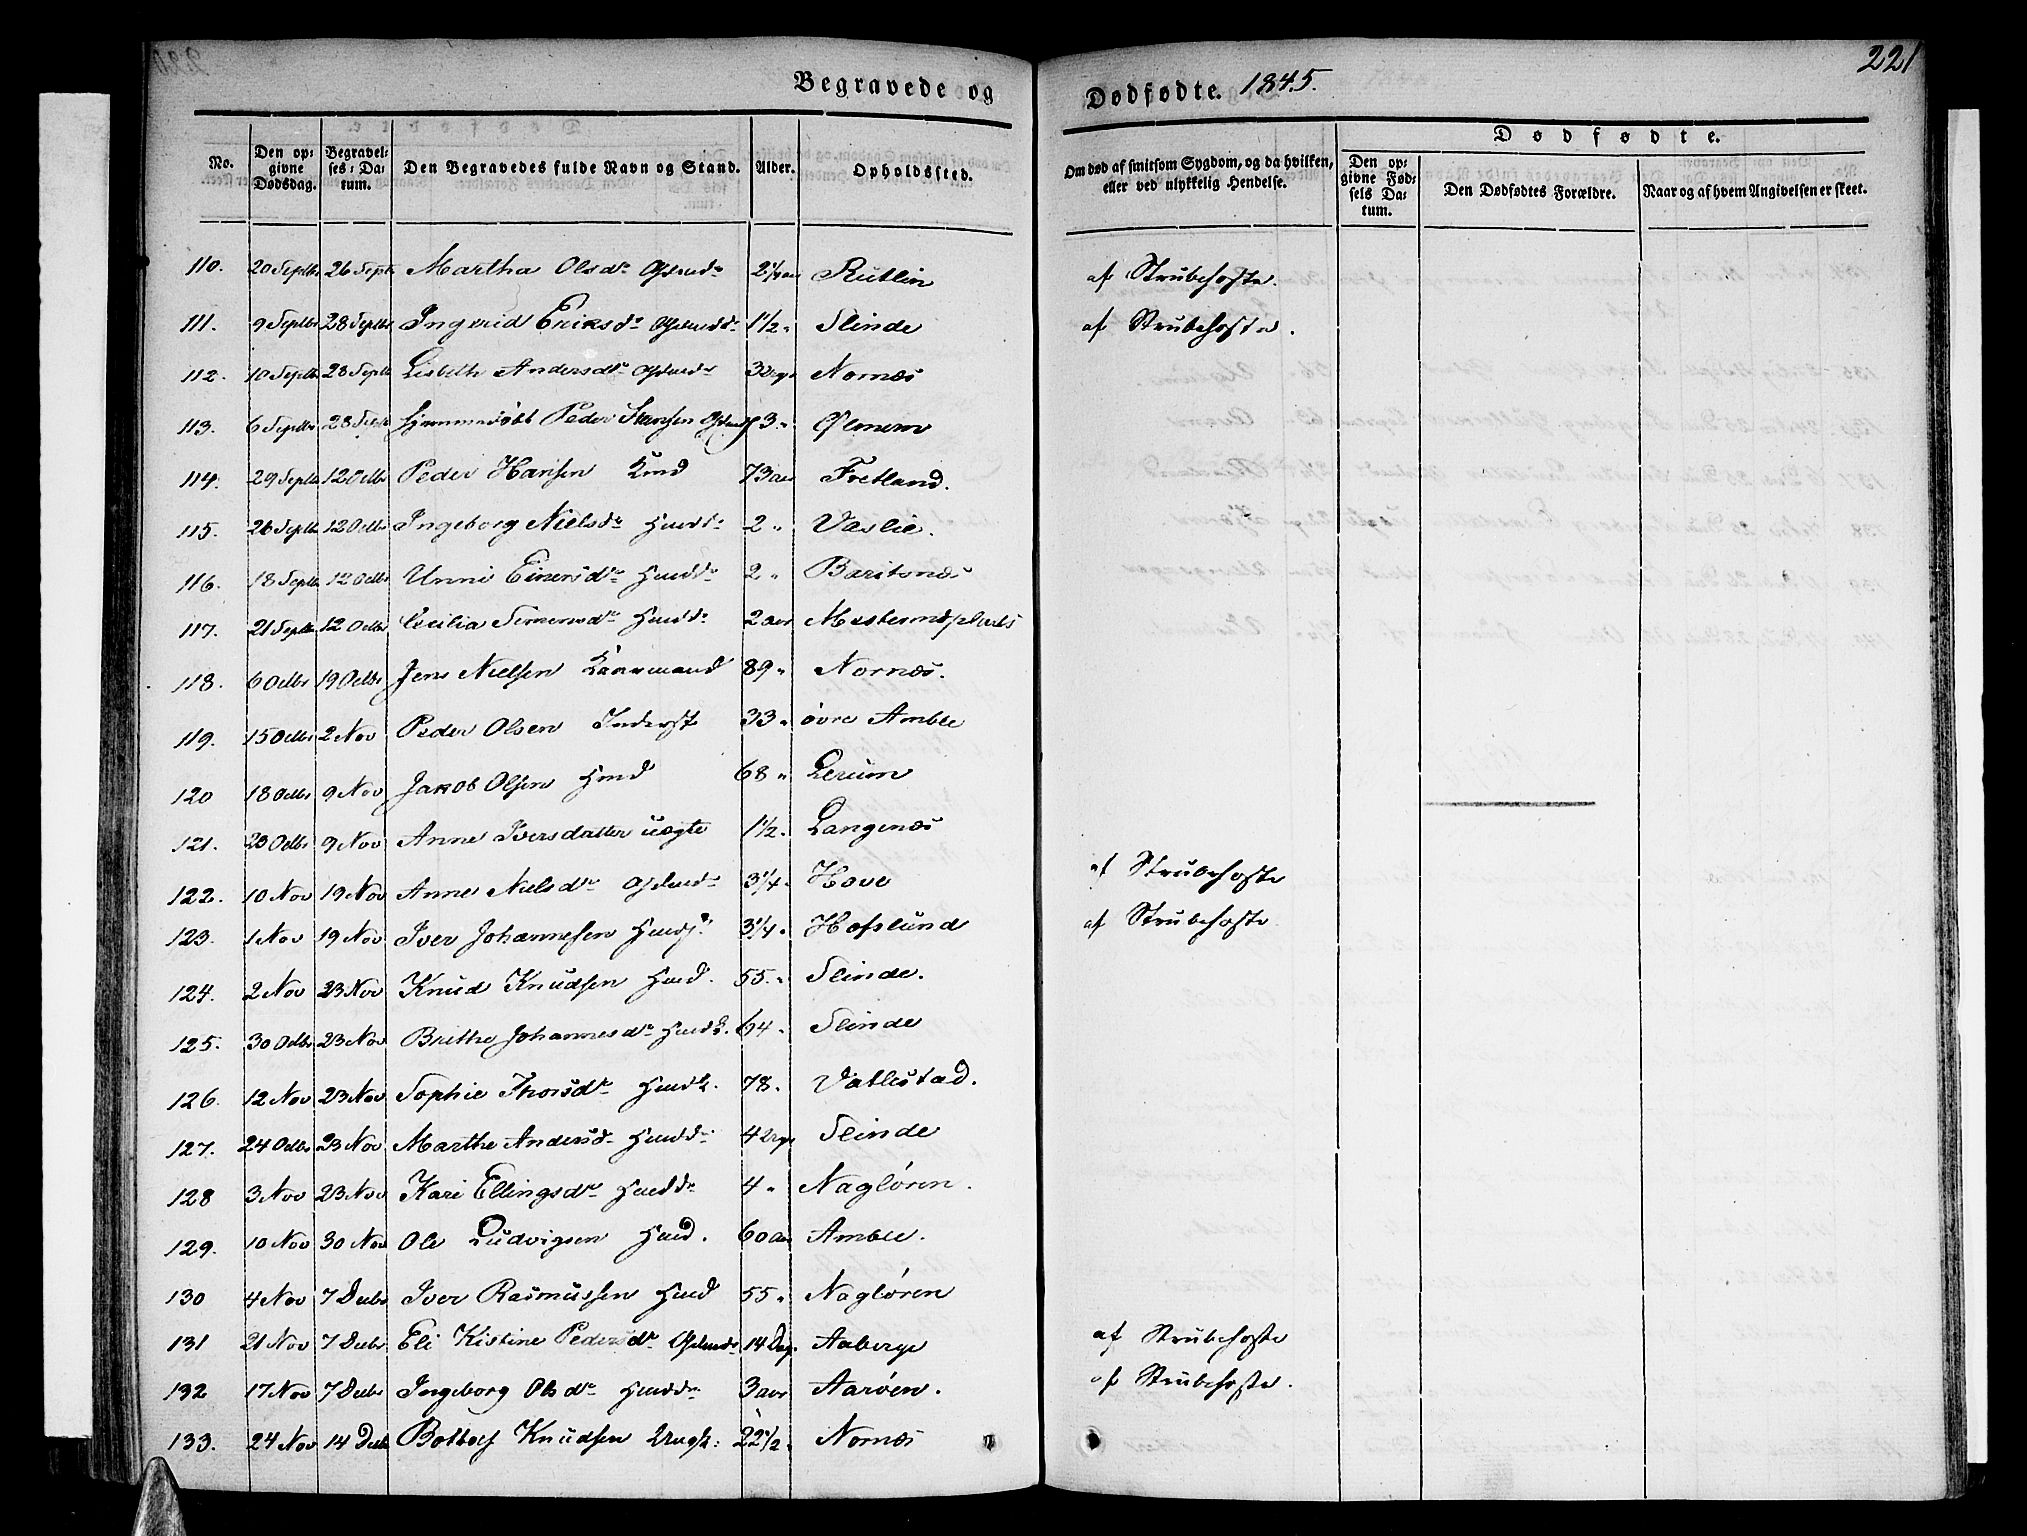 221
Begravede og Dødfødte. 1845.
No. Den opgivne Dødsdag. Begravelses-Datum. Den Begravedes fulde Navn og Stand. Alder. Opholdssted. Om død af smitsom Sygdom, og da hvilken, eller ved ulykkelig Hendelse. Dødfødte. Den opgivne Fødsels Datum. Den Dødfødtes Forældre. Naar og af hvem Angivelsen er skeet.
110. 20 Septbr 26 Septr Martha Olsdr 2 1/4 aar Rutlin af Strubehoste.
111. 9 Septbr 28 Septbr Ingerid Eriksdr 1 1/2 " Slinde af Strubehoste.
112. 10 Septbr 28 Septbr Lisbeth Andersdtr 3 Uger Nornæs
113. 6 Septbr 28 Septbr Hjemmedøbt Peder 3 " Ølmem
114. 29 Septbr 12 Octbr Peder Hansen 73 aar Fretland.
115. 26 Septbr 12 Octbr Ingeborg Nielsdr Huusdr 2 " Vaslie.
116. 18 Septbr 12 Octbr Unni Einersdr Huusdr 2 "
117. 21 Septbr 12 Octbr Cecilia Simensdr Huusdr 2 aar
118. 6 Octbr 19 Octbr Jens Nielsen Kaarmand 89 " Nornæs.
119. 15 Octbr 2 Nov Peder Olsen Inderst 33 " øvre Amble
120 18 Octbr 9 Nov Jakob Olsen Hmd 68 " Lerum
121. 20 Octbr 9 Nov Anne Iversdatter uægte 1 1/2 " Langenæs
122. 10 Nov 19 Nov Anne Nielsdr 3 1/4 " Hove af Strubehoste
123. 1 Nov 19 Nov Iver Johannesen Huuss. 3 1/4 " Hofslund af Strubehoste
124. 2 Nov 23 Nov Knud Knudsen Hmd. 55 " Slinde.
125. 30 Octbr 23 Nov Brithe Johannesdr 64 " Slinde
126. 12 Nov 23 Nov Sophie Thorsdr 78 " Vallestad.
127. 24 Octbr 23 Nov Marthe Andersdr Huusdr 4 Uger Slinde
128 3 Nov 23 Nov Kari Ellingsdr Huusdr 4 " Nagløren.
129. 10 Nov 30 Nov Ole Ludvigsen Hmd. 60 aar Amble.
130 4 Nov 7 Decbr Iver Rasmussen Hmd 55 " Nagløren
131 21 Nov 7 Decbr Eli Kistine Pedersdr 14 Dag. Aaberge af Strubehoste
132 17 Nov 7 Decbr Ingeborg Olsdr Huusdr 3 aar Aarøen. af Strubehoste.
133. 24 Nov 14 Decbr Botolf Knudsen Ungk: 22 1/2 " Nornæs